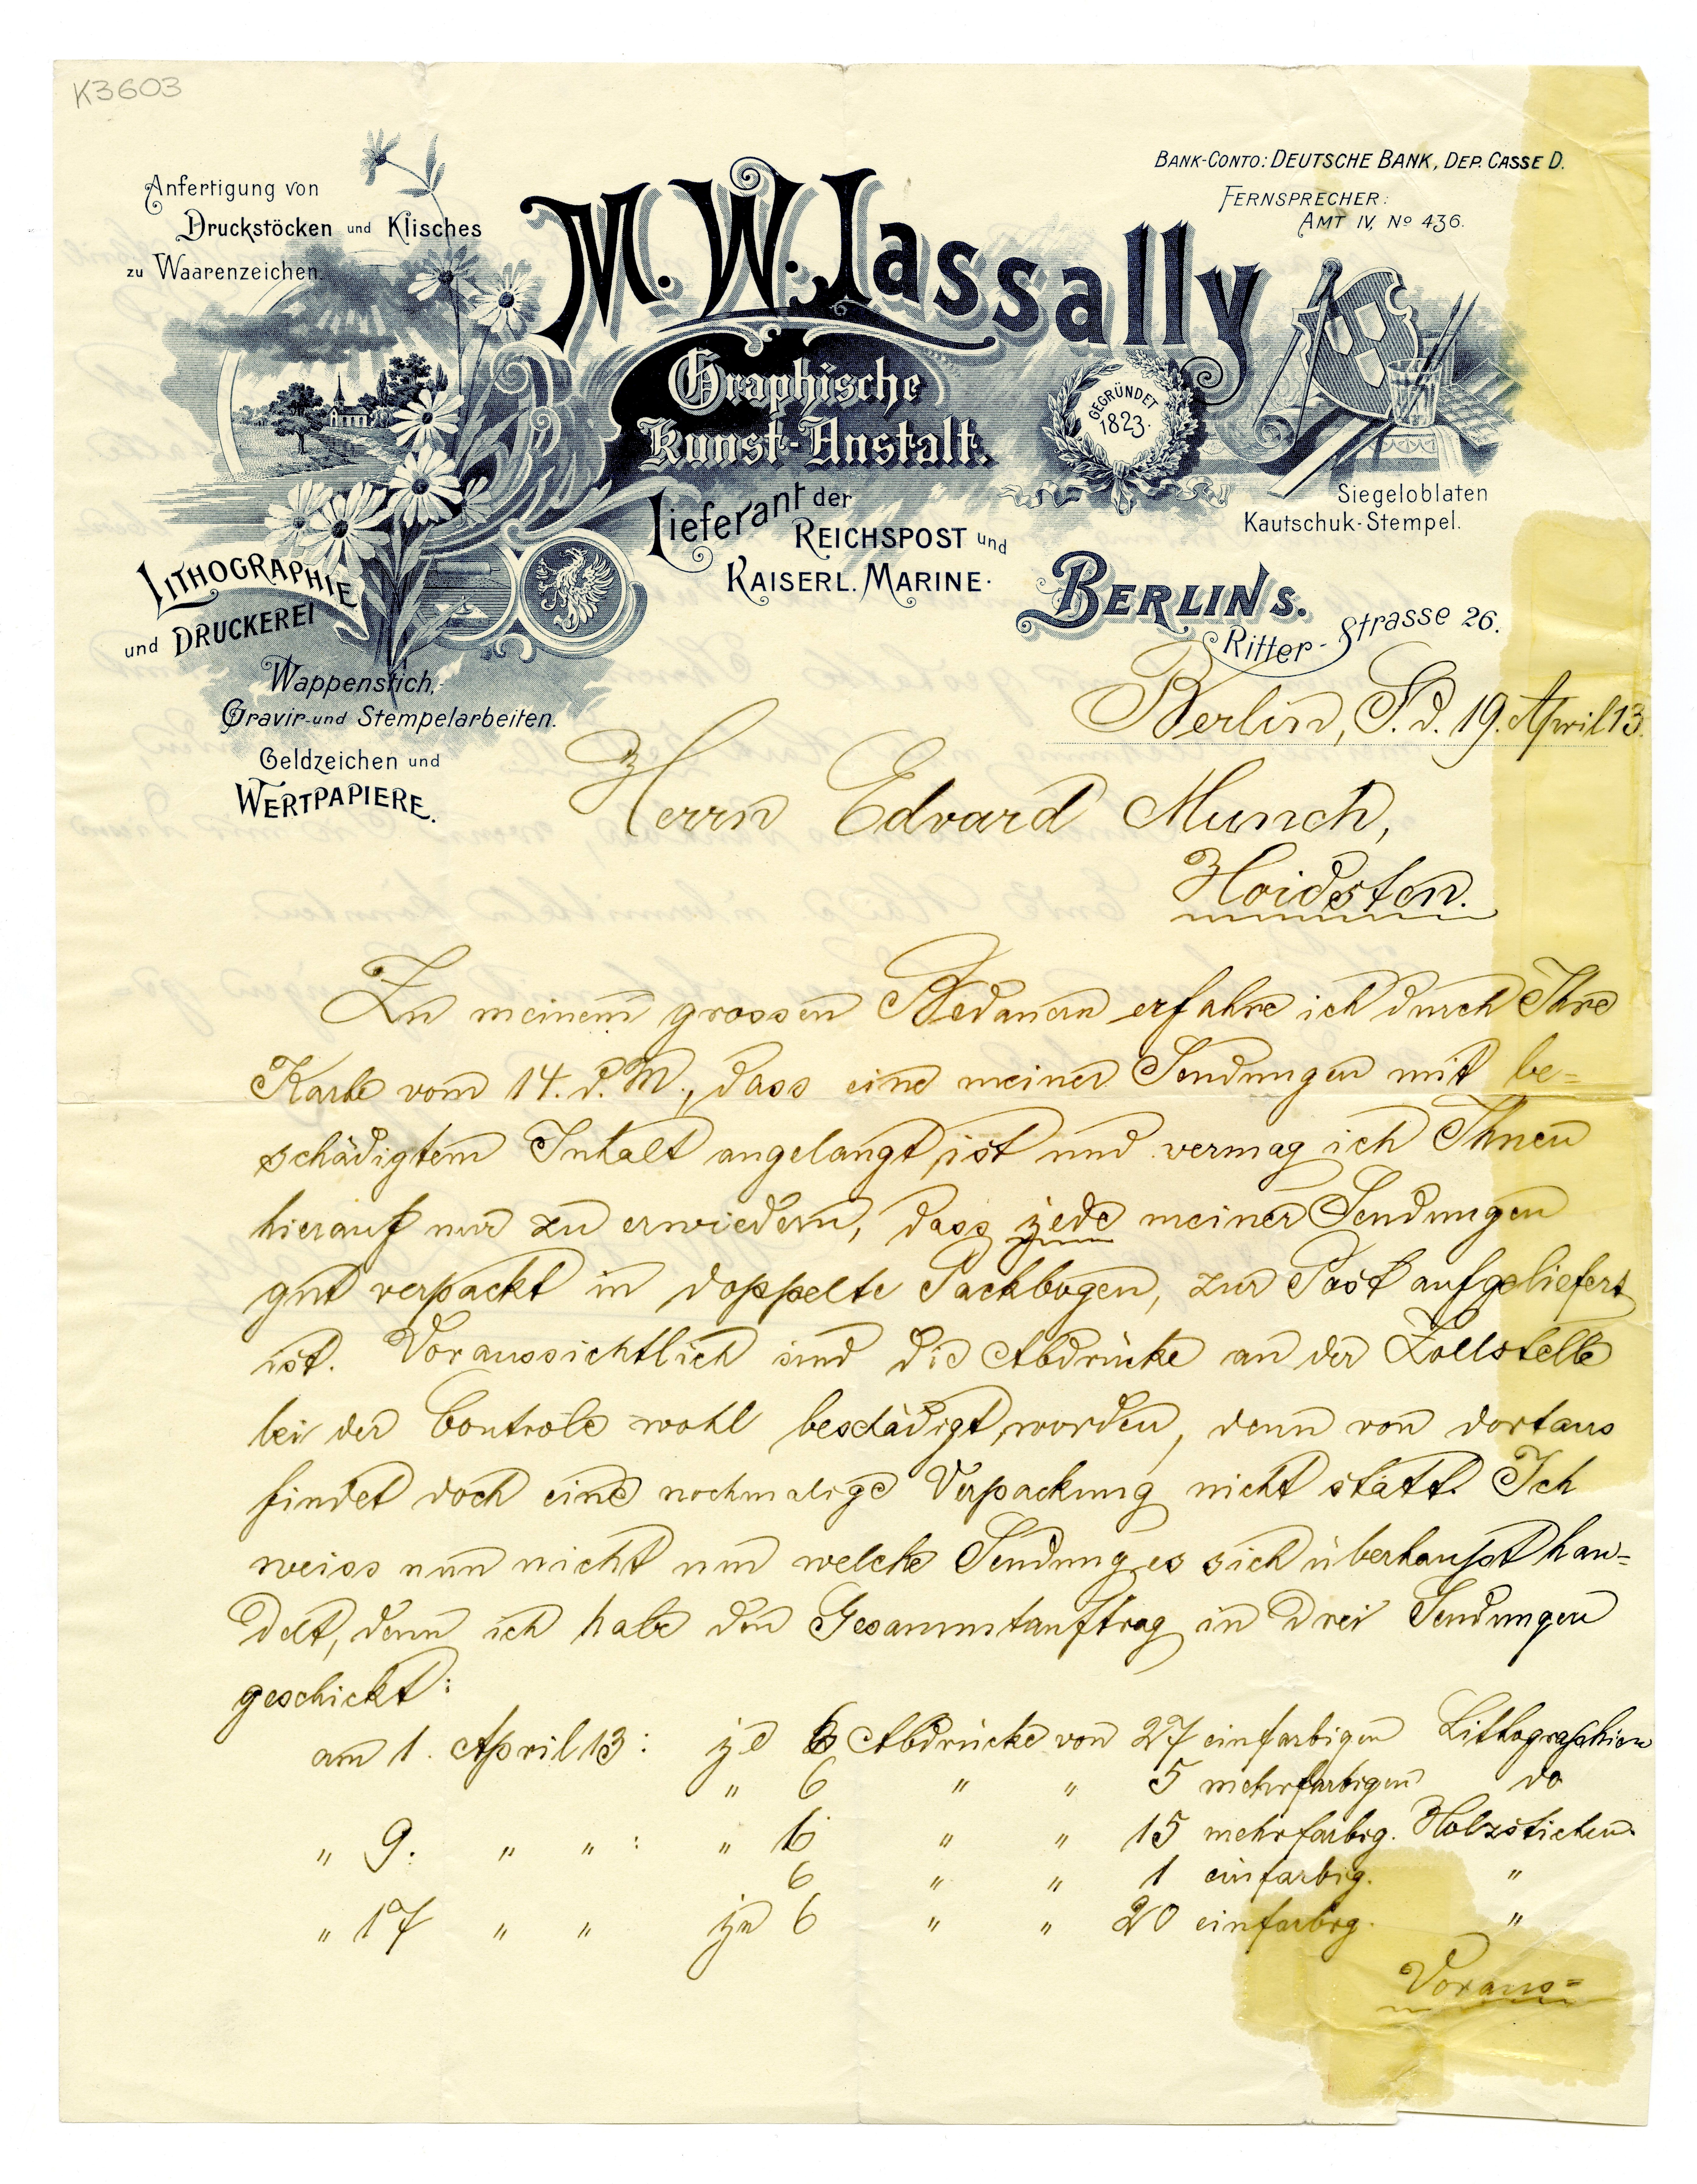 K3603
Anfertigung von
Druckstöcken und Klisches
zu Waarenzeichen.
M. W. Lassally
Graphische
Kunst-Anstalt.
Lieferant der
REICHSPOST und
KAISERL. MARINE.
BANK-CONTO: DEUTSCHE BANK, DEP. CASSE D.
FERNSPRECHER:
AMT IV, No 436.
GEGRÜNDET
1823.
Siegeloblaten
Kautschuk-Stempel.
BERLIN S.
Ritter-Strasse 26.
LITHOGRAPHIE
und DRUCKEREI
Wappenstich,
Gravir-und Stempelarbeiten.
Geldzeichen und
WERTPAPIERE.
Berlin, S. d. 19. April 13.
Herrn Edvard Munch,
Hoidsten.
Zu meinem grossen Bedauern erfahre ich durch Ihre
Karte vom 14. d. M., dass eine meiner Sendungen mit be=
schädigtem Inhalt angelangt ist und vermag ich Ihnen
hierauf nur zu erwiedern, dass jede meiner Sendungen
gut verpackt in doppelte Packbogen, zur Post aufgeliefert
ist. Voraussichtlich sind die Abdrücke an der Zollstelle
bei der Controle wohl beschädigt worden, denn von dortaus
findet doch eine nochmalige Verpackung nicht statt. Ich
weiss nun nicht um welche Sendung es sich überhaupt han=
delt, denn ich habe den Gesammtauftrag in drei Sendungen
geschickt:
am 1. April 13: je 6 Abdrücke von 27 einfarbigen Lithographien
" 6 " " 5 mehrfarbigen do
" 9. " " : " 6 " " 15 mehrfarbig. Holzstichen.
6 " " 1 einfarbig. "
" 17 " " je 6 " " 20 einfarbig. "
Voraus=